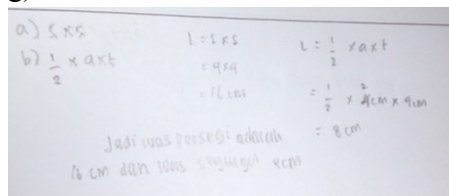 a) s x s
b) 1/2 x a x t
L = s x s
= 4x4
= 16 cm
L = 1/2 x a x t
= 1/2 x 4cm x 4cm
2
= 8 cm
Jadi luas persegi adalah
16 cm dan luas segitiga 8cm